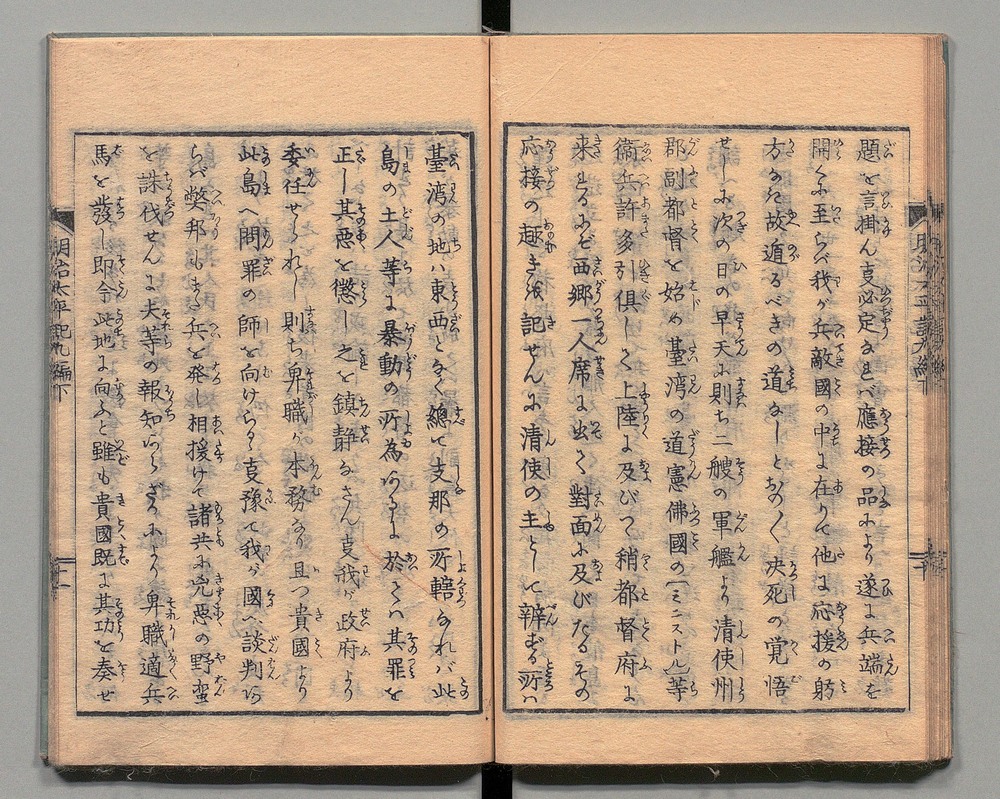 題を言掛ん支必定なれバ應接の品により遂に兵端を
開くに至らバ我が兵敵國の中に在りて他に応援の躬
方なた故遁るべきの道なしとおの〱決死の覚悟
せしに次の日の早天に則ち二艘の軍艦より清使州
郡副都督を始め臺湾の道憲佛國の〔ミニストル〕等
衛兵許多引俱して上陸に及びて稍都督府に
来るにぞ西郷一人席に出て對面に及びたるその
応接の趣きを記せんに清使の主として辨ずる所ハ
臺湾の地ハ東西となく總て支那の所轄なれバ此
島の土人等に暴動の所為あるに於てハ其罪を
正し其悪を懲し之を鎮静なさん支我が政府より
委任せられし則ち卑職が本務なり且つ貴國より
此島へ問罪の師を向けらる支豫て我が國へ談判あ
らバ弊邦もまた兵を発し相援けて諸共に兇悪の野蛮
を誅伐せんに夫等の報知あらざるにより卑職適兵
馬を發し即令此地に向ふと雖も貴國既に其功を奏せ
明治太平記九編下
明治太平記九編下
十一